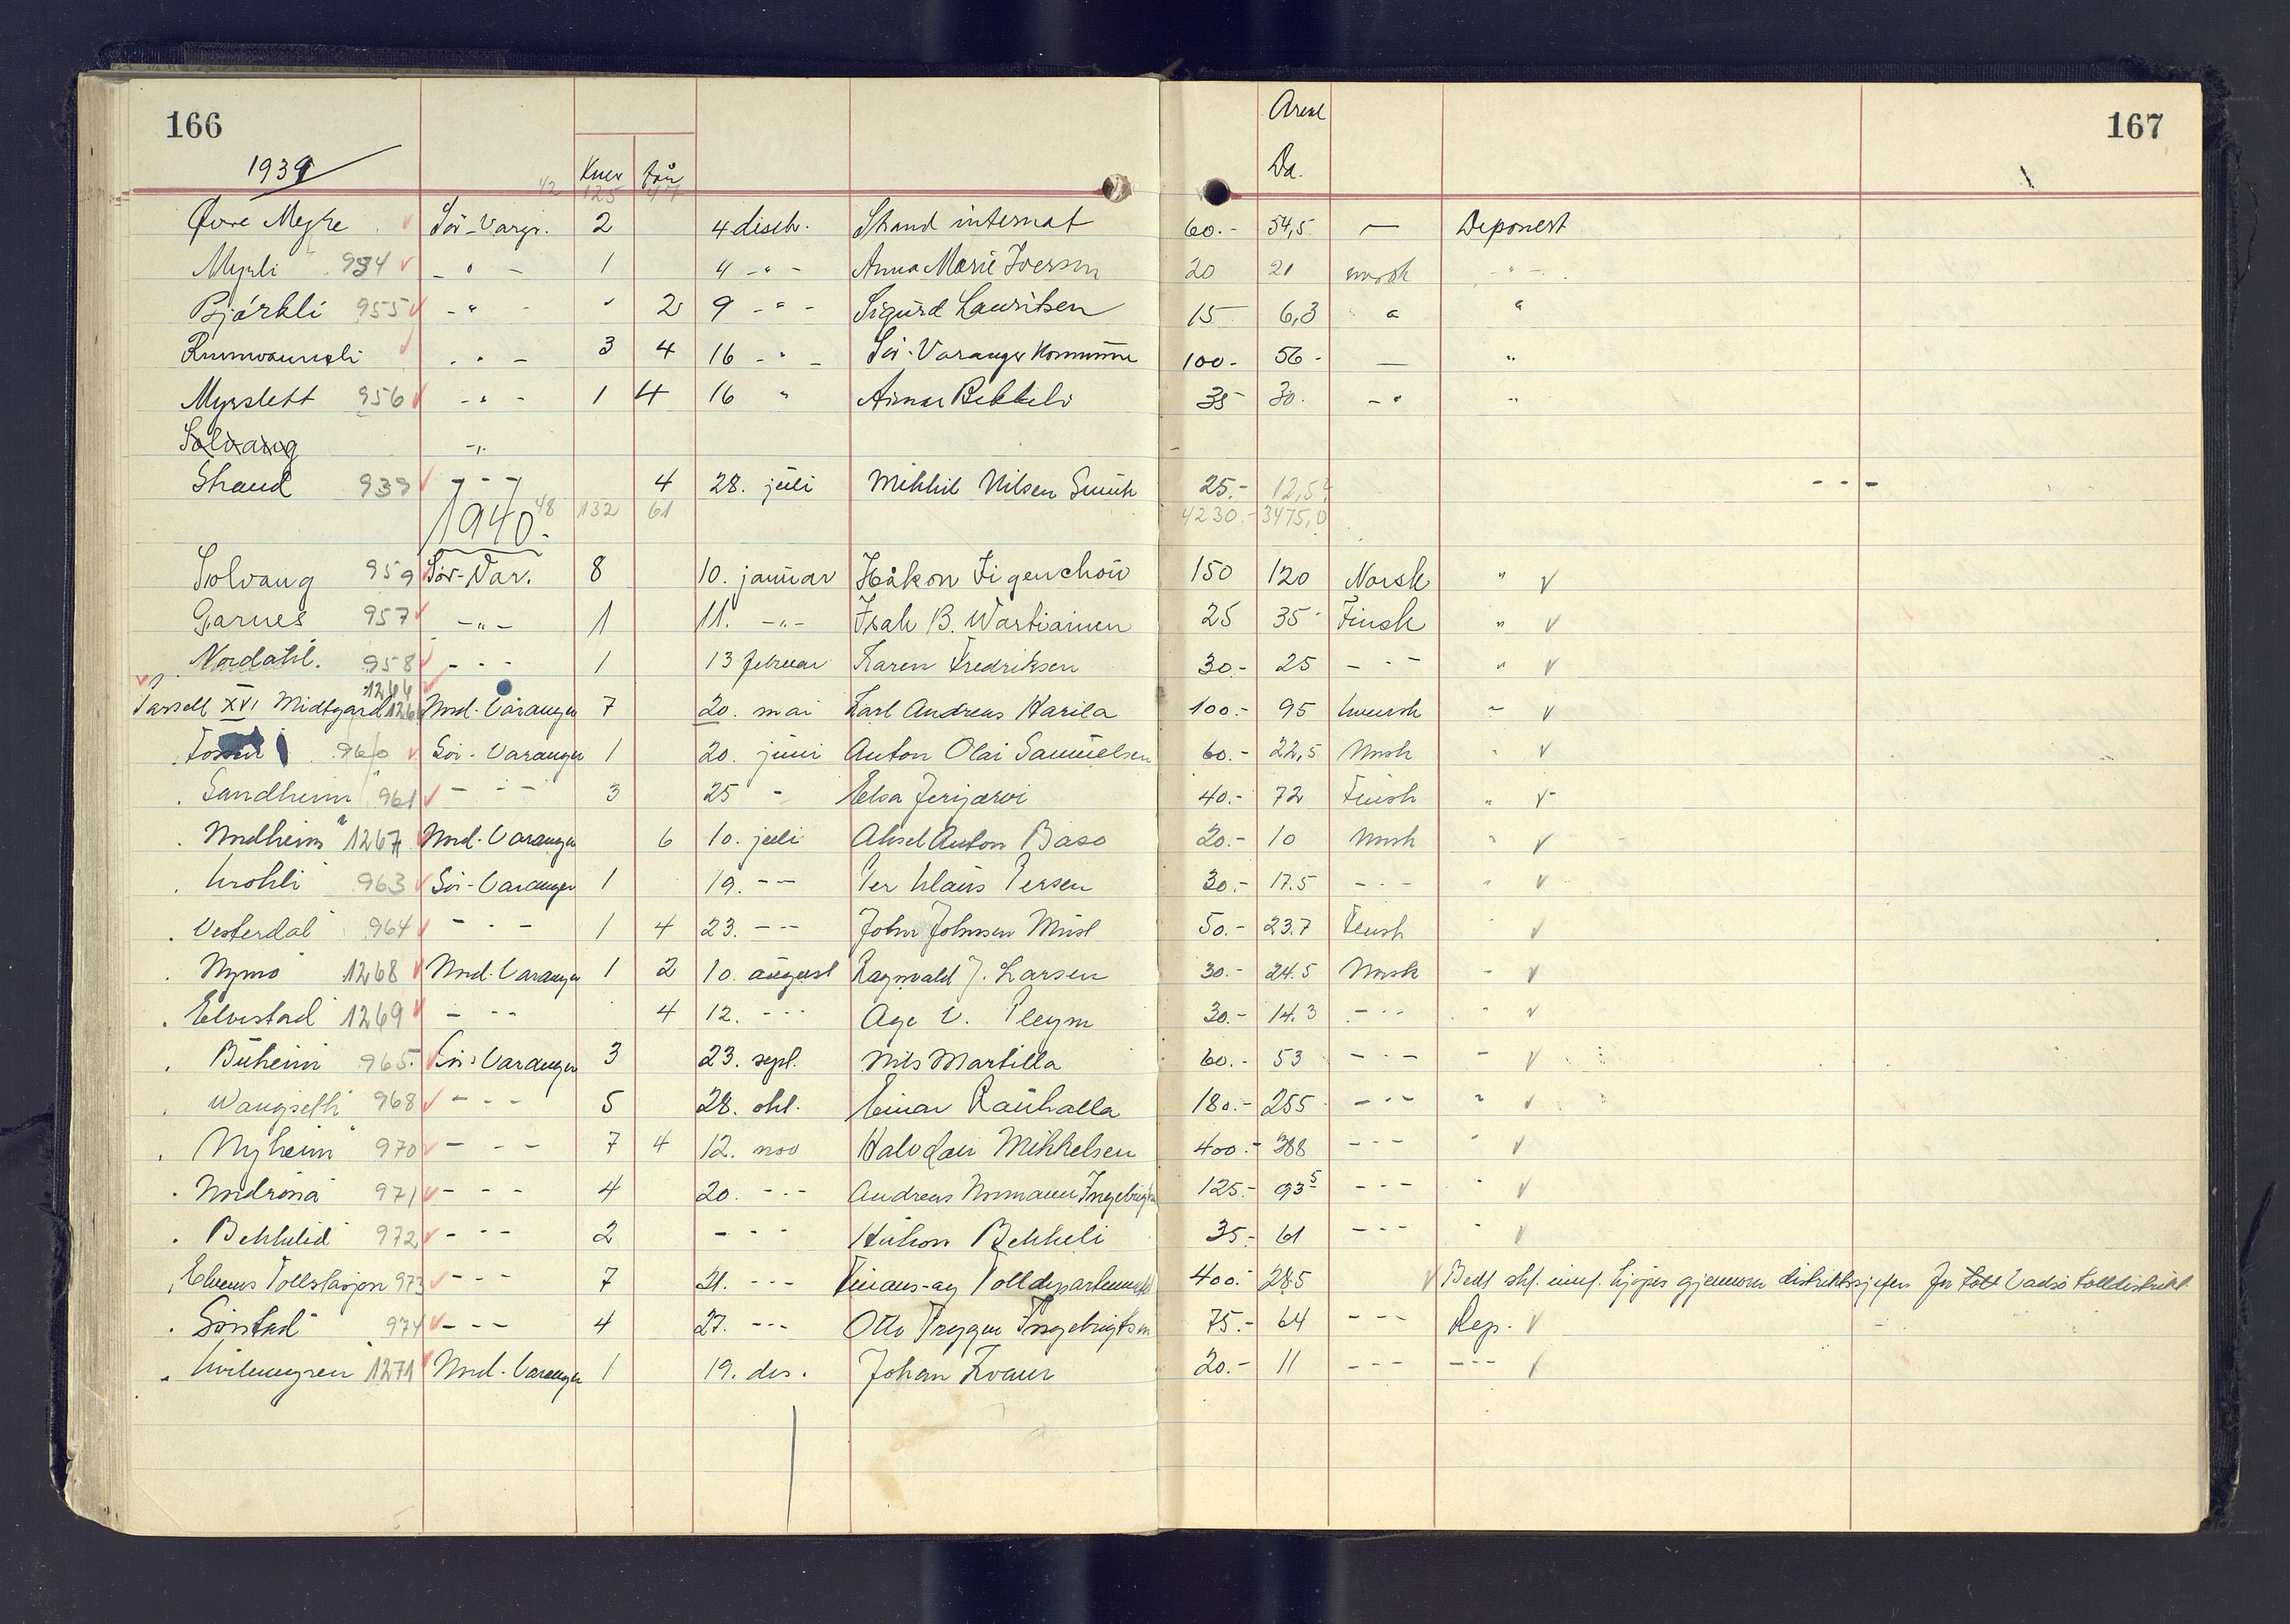 166
167
1939
42 125 47
Areal
Da.
Øvre Mejke Sör-Varg. 2 4 disch. Strand internat 60.- 54,5 — Deponert
Myrli 934 - " - 1 4 - " - Anna Marie Iversen 20 21 norsk - " -
Bjørkli 955 - " - " 2 9 - " - Sigurd Lauritsen 15 6,3 " "
- " - 3 4 16 - " - Sör-Varanger Kommune 100.- 56.- — "
Myrslett 956 - " - 1 4 16 " Aimar Bekkeli 35 30. - " "
Solvang - " -
Strand 939 - " - 4 28. juli Mikkel Nilsen 25.- 12,5
1940. 48 132 61 4230.- 3475,0
Solvang 959 Sör-Var. 8 10. januar Håkon Figenchow 150 120 Norsk " v
Garnes 957 - " - 1 11. - " - Isak B. Wartiainen 25 35 Finsk " v
Nordahl. 958 - " - 1 13 februar Karen Fredriksen 30.- 25 - " - " v
1266
Parsell XVI Midtgård 126 Nord-Varanger 7 20. mai Karl Andreas Harila 100.- 95 kvensk " v
Fossen 960 Sör-Varanger 1 20. juni Anton Olai Samuelsen 60.- 22,5 Norsk " v
Sandheim 961 - " - 3 25 " Elsa Jerijærvi 40.- 72 Finsk " v
Nordheim 1267 Nord-Varanger 6 10. juli Aksel Anton Baso 20.- 10 Norsk " v
Krokli 963 Sör-Varanger 1 19. - - Per Klaus Persen 30.- 17.5 - " - " v
Vesterdal 964 - " - 1 4 23. - - John Johnsen 50.- 23.7 Finsk " v
Nymo 1268 Nord-Varanger 1 2 10. august Ragnvald J. Larsen 30.- 24.5 Norsk " v
Elvestad 1269 - " - 4 12. - " - Åge V. Pleym 30.- 14.3 - " - " v
Buheim 965 Sör-Varanger 3 23. sept. Nils Martilla 60.- 53 - " - " v
968 - " - 5 28. okt. Einar Rauhalla 180.- 255 - " - " v
Nyheim 970 - " - 7 4 12. nov Halvdan Mikkelsen 400.- 388 - " - " v
971 - " - 4 20. - " - Andreas Normann Ingebrigtsen 125.- 93 5 - " - " v
Bekkelid 972 - " - 2 - " - Håkon Bekkeli 35.- 61 - " - " v
Elvenes Tollstasjon 973 - " - 7 21. - " - Finans-og Tolldepartementet 400.- 285 v Bedt innf. kjøpes gjennom distriktssjefen for Vadsø tolldistrikt
Sörstad 974 - " - 4 27. - " - Otto Trygve Ingebrigtsen 75.- 64 - " - Dep. v
1271 Nord-Varanger 1 19. des. Johan Kvam 20.- 11 - " - - " - v